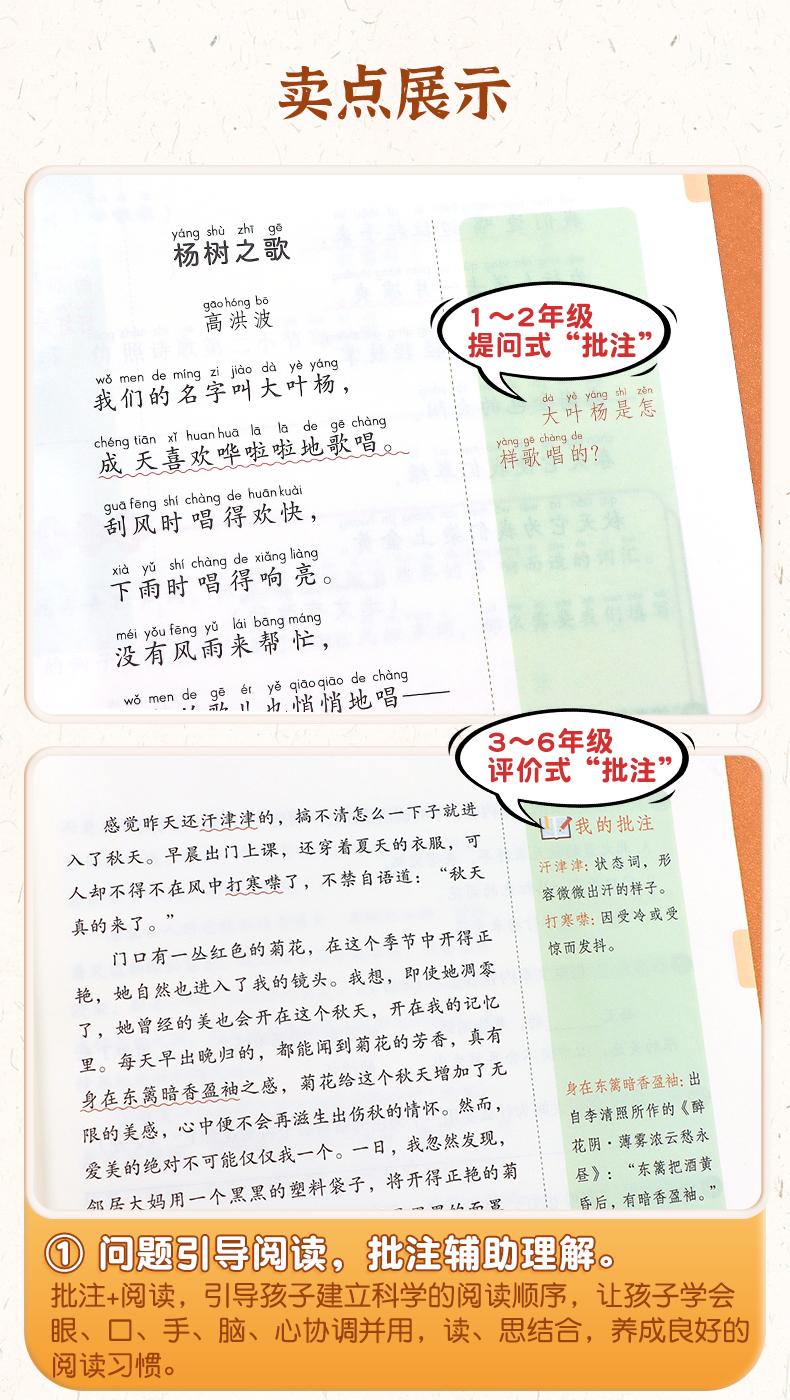 卖点展示
yáng shù zhī gē
杨树之歌
gāo hóng bō
高洪波
wǒ men de míng zi jiào dà yè yáng
我们的名字叫大叶杨，
chéng tiān xǐ huan huā lā lā de gē chàng
成天喜欢哗啦啦地歌唱。
guā fēng shí chàng de huān kuài
刮风时唱得欢快，
xià yǔ shí chàng de xiǎng liàng
下雨时唱得响亮。
méi yǒu fēng yǔ lái bāng máng
没有风雨来帮忙，
wǒ men de gē ér yě qiāo qiāo de chàng
歌儿也悄悄地唱——
1～2年级
提问式“批注”
dà yè yáng shì zěn
大叶杨是怎
yàng gē chàng de
样歌唱的？
3～6年级
评价式“批注”
感觉昨天还汗津津的，搞不清怎么一下子就进
入了秋天。早晨出门上课，还穿着夏天的衣服，可
人却不得不在风中打寒噤了，不禁自语道：“秋天
真的来了。”
门口有一丛红色的菊花，在这个季节中开得正
艳，她自然也进入了我的镜头。我想，即使她凋零
了，她曾经的美也会开在这个秋天，开在我的记忆
里。每天早出晚归的，都能闻到菊花的芳香，真有
身在东篱暗香盈袖之感，菊花给这个秋天增加了无
限的美感，心中便不会再滋生出伤秋的情怀。然而，
爱美的绝对不可能仅仅我一个。一日，我忽然发现，
邻居大妈用一个黑黑的塑料袋子，将开得正艳的菊
我的批注
汗津津：状态词，形
容微微出汗的样子。
打寒噤：因受冷或受
惊而发抖。
身在东篱暗香盈袖：出
自李清照所作的《醉
花阴·薄雾浓云愁永
昼》：“东篱把酒黄
昏后，有暗香盈袖。”
① 问题引导阅读，批注辅助理解。
批注+阅读，引导孩子建立科学的阅读顺序，让孩子学会
眼、口、手、脑、心协调并用，读、思结合，养成良好的
阅读习惯。